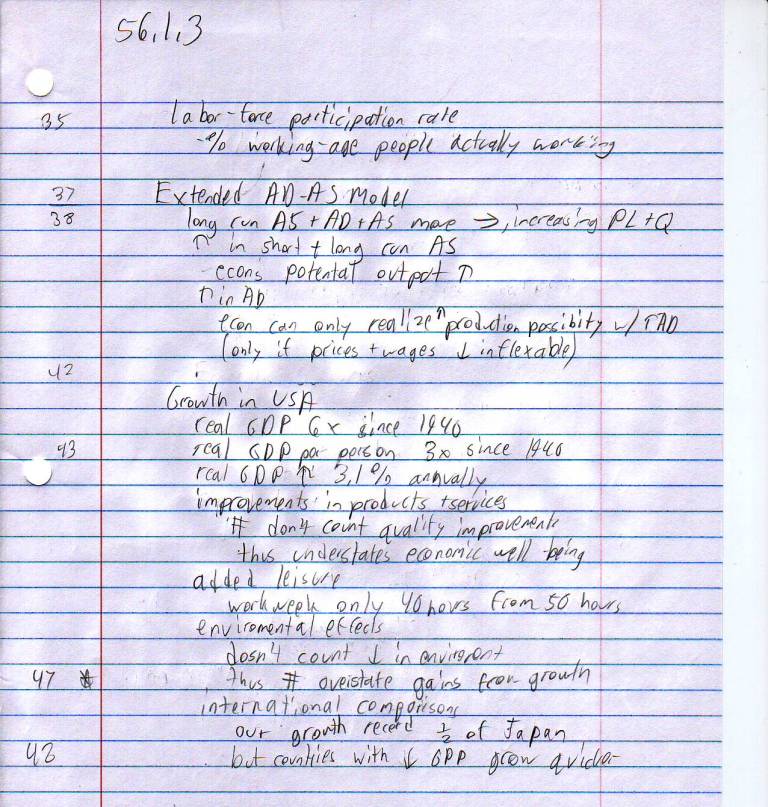 56.1.3
35 labor-force participation rate
-% working-age people actually working
37 Extended AD-AS Model
38 long run AS + AD + AS move →, increasing PL + Q
↑ in short + long run AS
econs potental output ↑
↑ in AD
econ can only realize ↑ production possibity w/ ↑AD
(only if prices + wages ↓ inflexable)
42
Growth in USA
real GDP 6x since 1940
43 real GDP per person 3x since 1940
real GDP ↑ 3.1% annually
improvements in products + services
# don't count quality improvements
thus understates economic well-being
added leisure
workweek only 40 hours from 50 hours
enviromental effects
dosn't count ↓ in enviroment
47 * thus # overstate gains from growth
international comparisons
our growth record ½ of Japan
48 but countries with ↓ GDP grow quicker